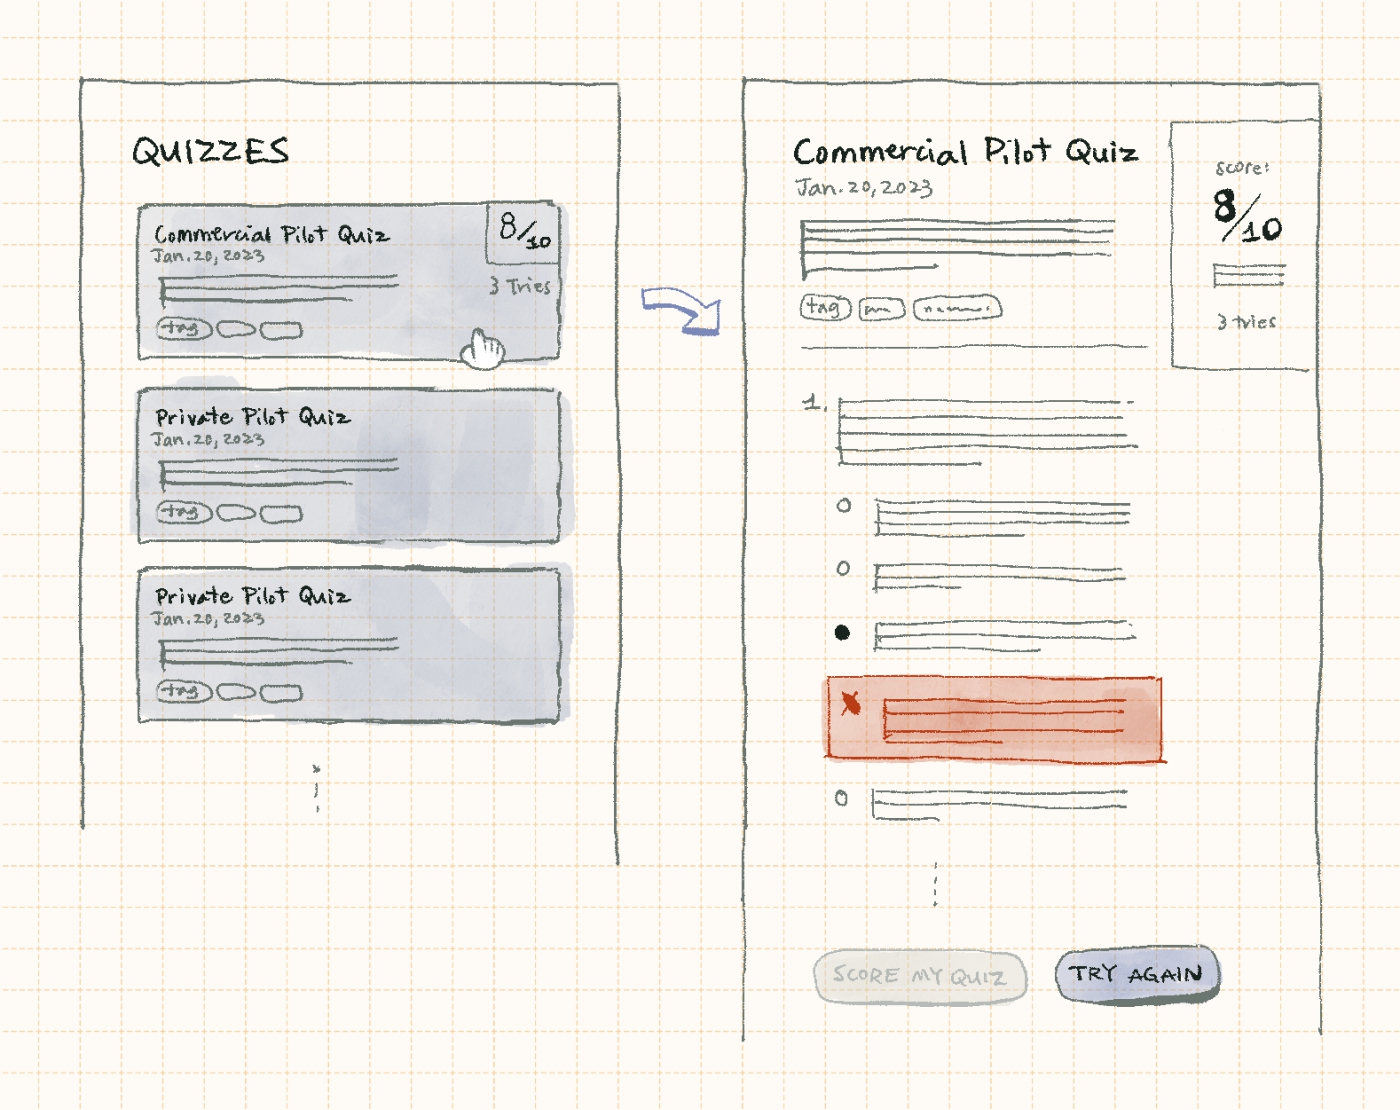 QUIZZES
Commercial Pilot Quiz
Jan. 20, 2023
8/10
3 Tries
tag
Private Pilot Quiz
Jan. 20, 2023
tag
Private Pilot Quiz
Jan. 20, 2023
tag
Commercial Pilot Quiz
Jan. 20, 2023
tag
score:
8/10
3 tries
1.
SCORE MY QUIZ
TRY AGAIN